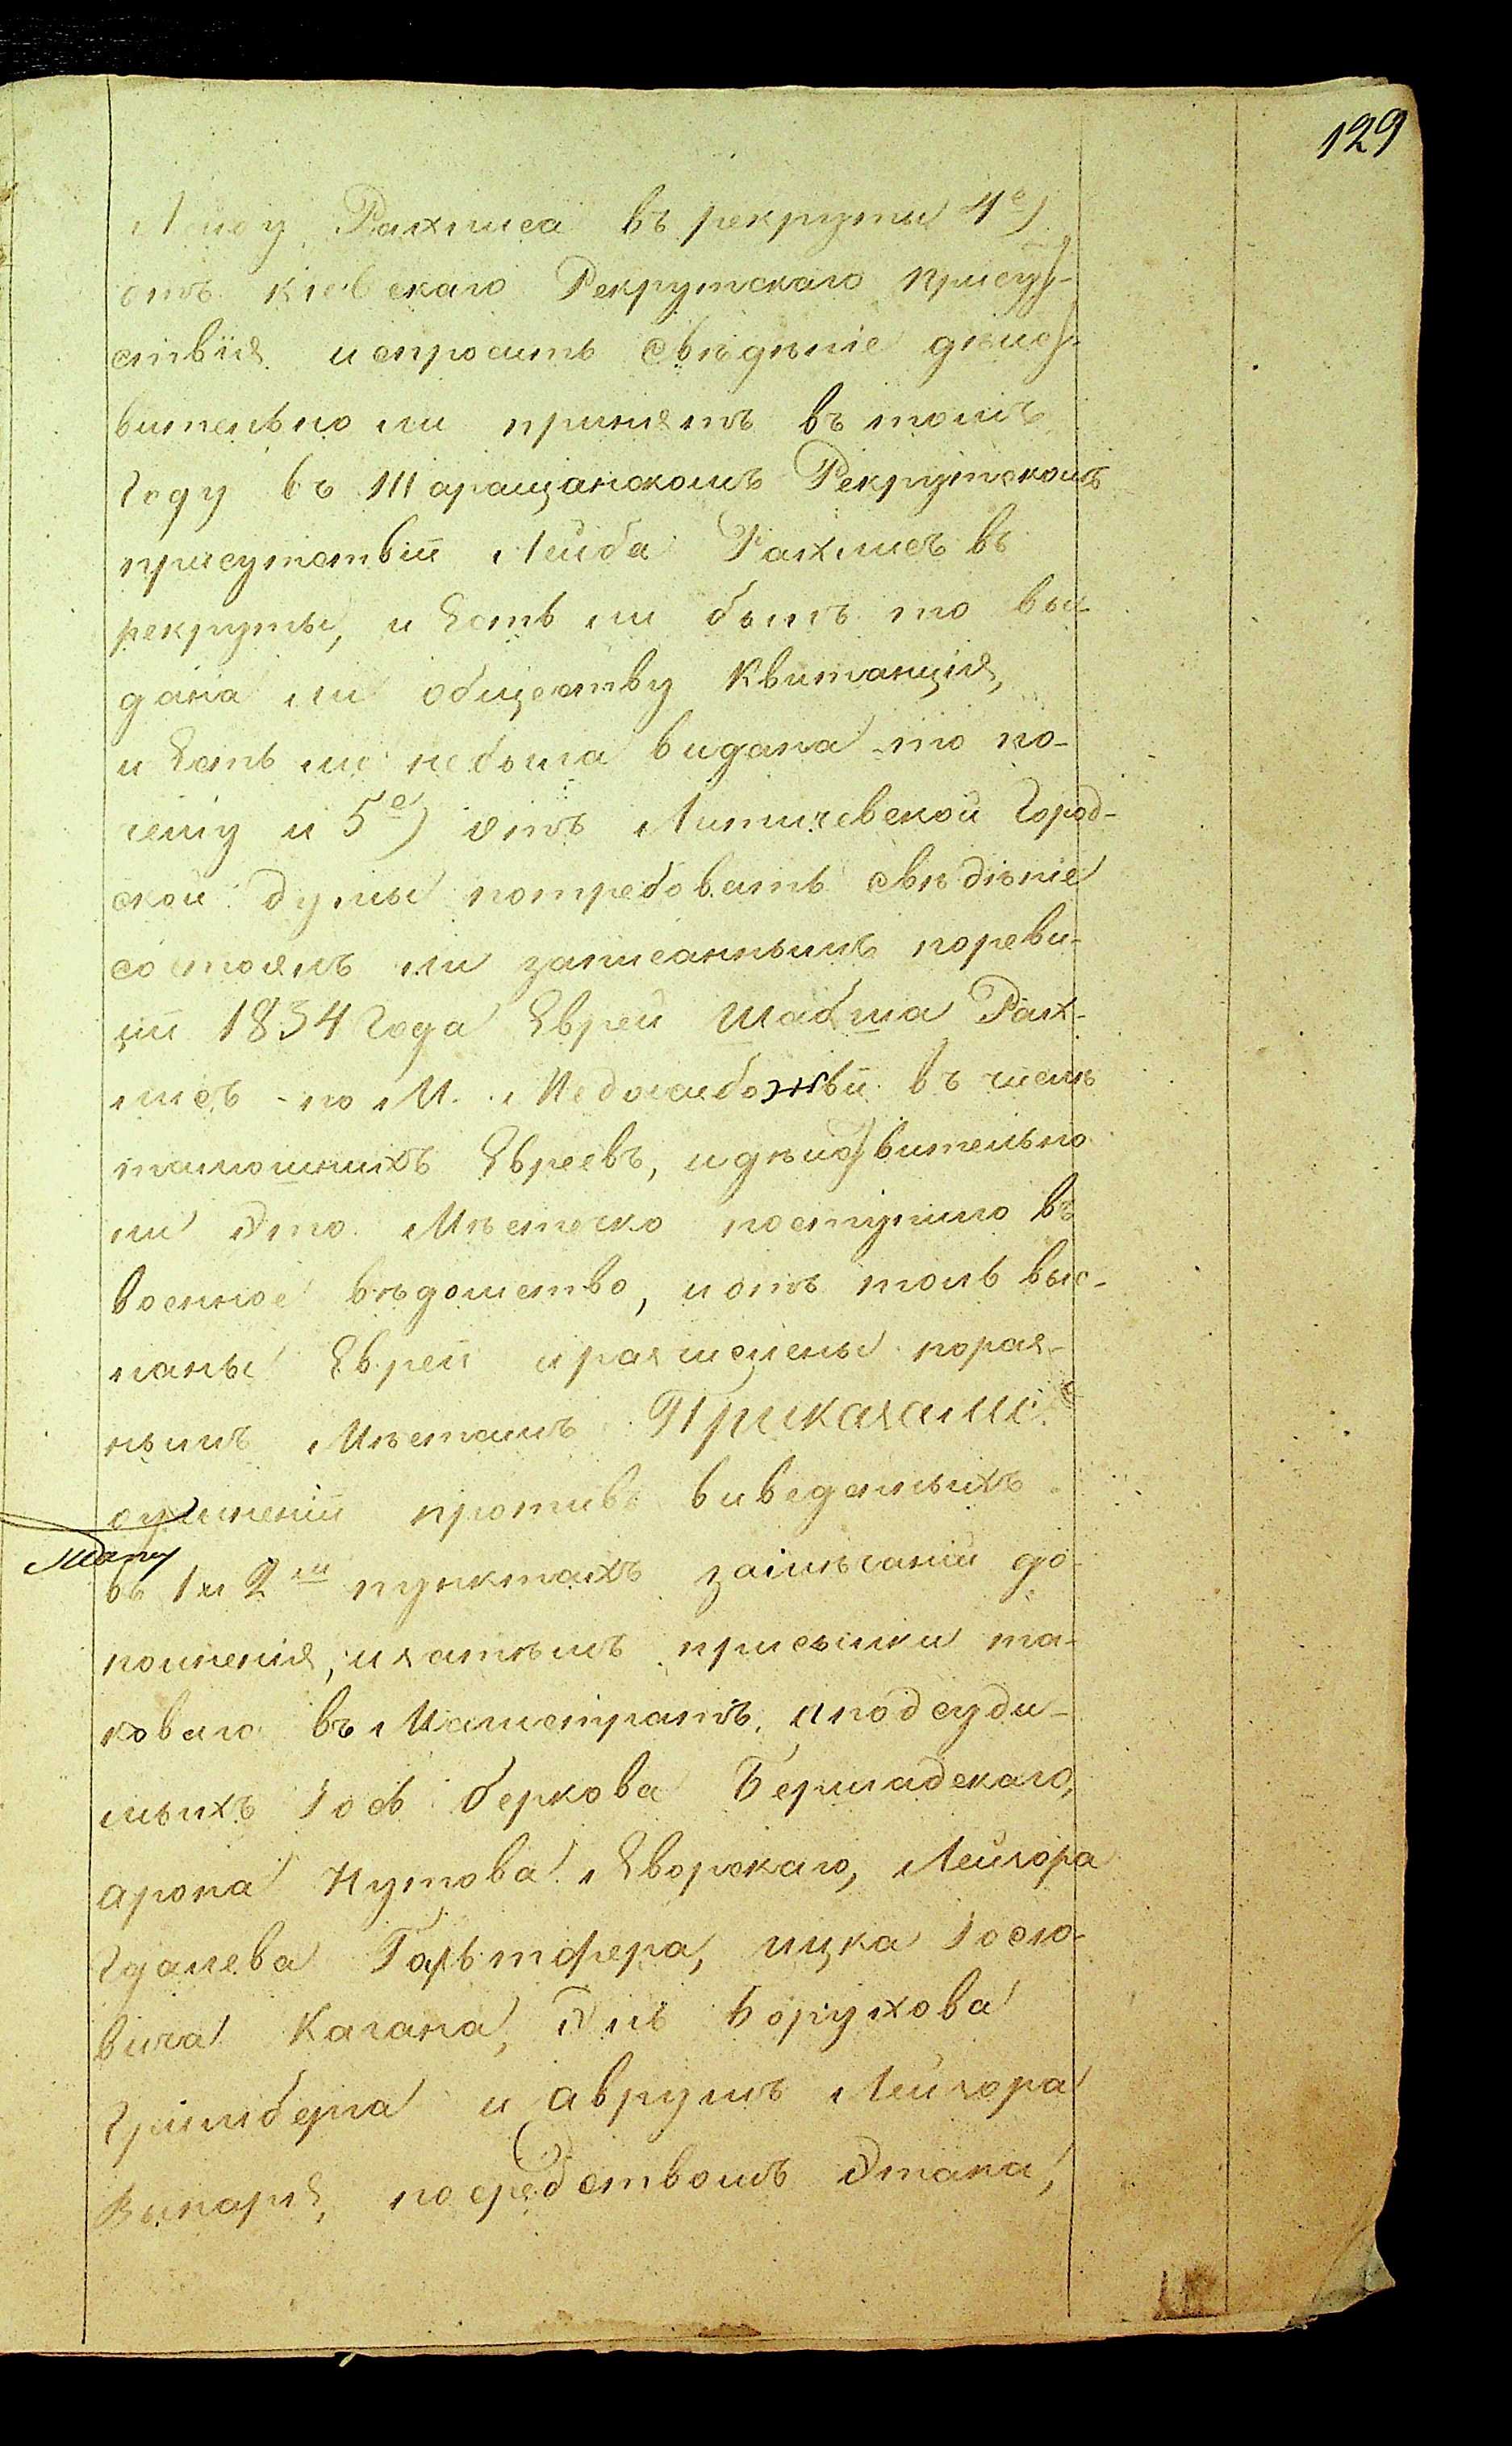 129
Лейбу Рахлиса въ рекруты 4е)
отъ кіевскаго Рекрутскаго присут-
ствія испросить свѣдѣніе дѣйс-
вительно ли принятъ въ томъ
году въ Таращанскомъ Рекрутскомъ
присутствіи Лейба Рахлисъ въ
рекруты, и Естьли былъ то вы-
дана ли обществу Квитанція,
и Естьли небыла видана то по-
чему и 5е) отъ Литичевской Город-
ской думы потребовать свѣдѣніе
состоялъ ли записаннымъ пореви-
зіи 1834 года Еврей Шабша Рах-
лисъ по М. Медожибожьи въ числѣ
тамошнихъ Евреевъ, и дѣйсвительно
ли Это Мѣстечко поступило въ
военное вѣдомство, и отъ толь выс-
ланы Евреи и размещены пораз-
нымъ Мѣстамъ Приказали: о
учиненіи противъ виведенныхъ
въ 1 и 2м пунктахъ замѣчаній до-
полненія, и затѣмъ присылки та-
коваго въ Магистратъ, а подсуди-
мыхъ Іось беркова Бершадскаго,
арона Нутова Яворскаго, Лейзора
Гдалева Гольтфера, ицка Іосіо-
вича Кагана, Эль Борухова
Гринберга и аврумъ Лейзора
Винаря, посредствомъ Этапа,